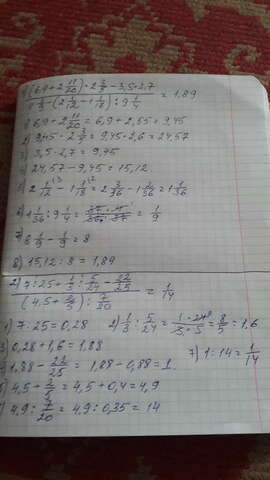 ((6,9+2 11/20)·2 3/5−3,5·2,7)/(8 1/9−(2 1/12−1 1/18):9 1/4) = 1,89
1) 6,9+2 11/20 = 6,9+2,55=9,45
2) 9,45·2 3/5 = 9,45·2,6=24,57
3) 3,5·2,7=9,45
4) 24,57−9,45=15,12
5) 2 1/12−1 1/18 = 2 3/36−1 2/36=1 1/36
6) 1 1/36:9 1/4 = 37·4/36·37 = 1/9
7) 8 1/9−1/9=8
8) 15,12:8=1,89
2) (7:25+1/3:5/24−22/25)/((4,5+2/5):7/20) = 1/14
1) 7:25=0,28 2) 1/3:5/24=1·24/3·5=8/5=1,6
3) 0,28+1,6=1,88
7) 1:14=1/14
4) 1,88−22/25=1,88−0,88=1
5) 4,5+2/5=4,5+0,4=4,9
6) 4,9:7/20=4,9:0,35=14